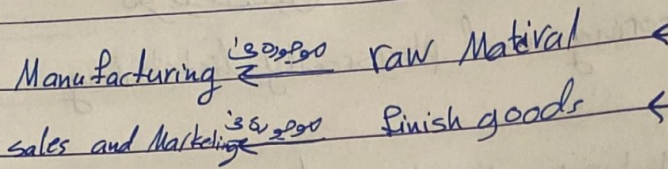 Manufacturing ← raw Matiral ←
sales and Marketing ← finish goods ←